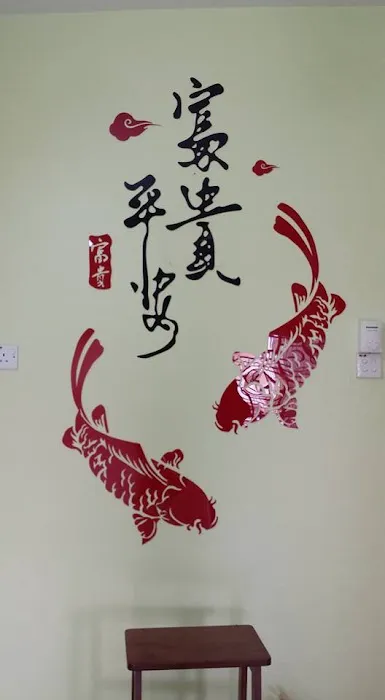 富貴
平安
富貴